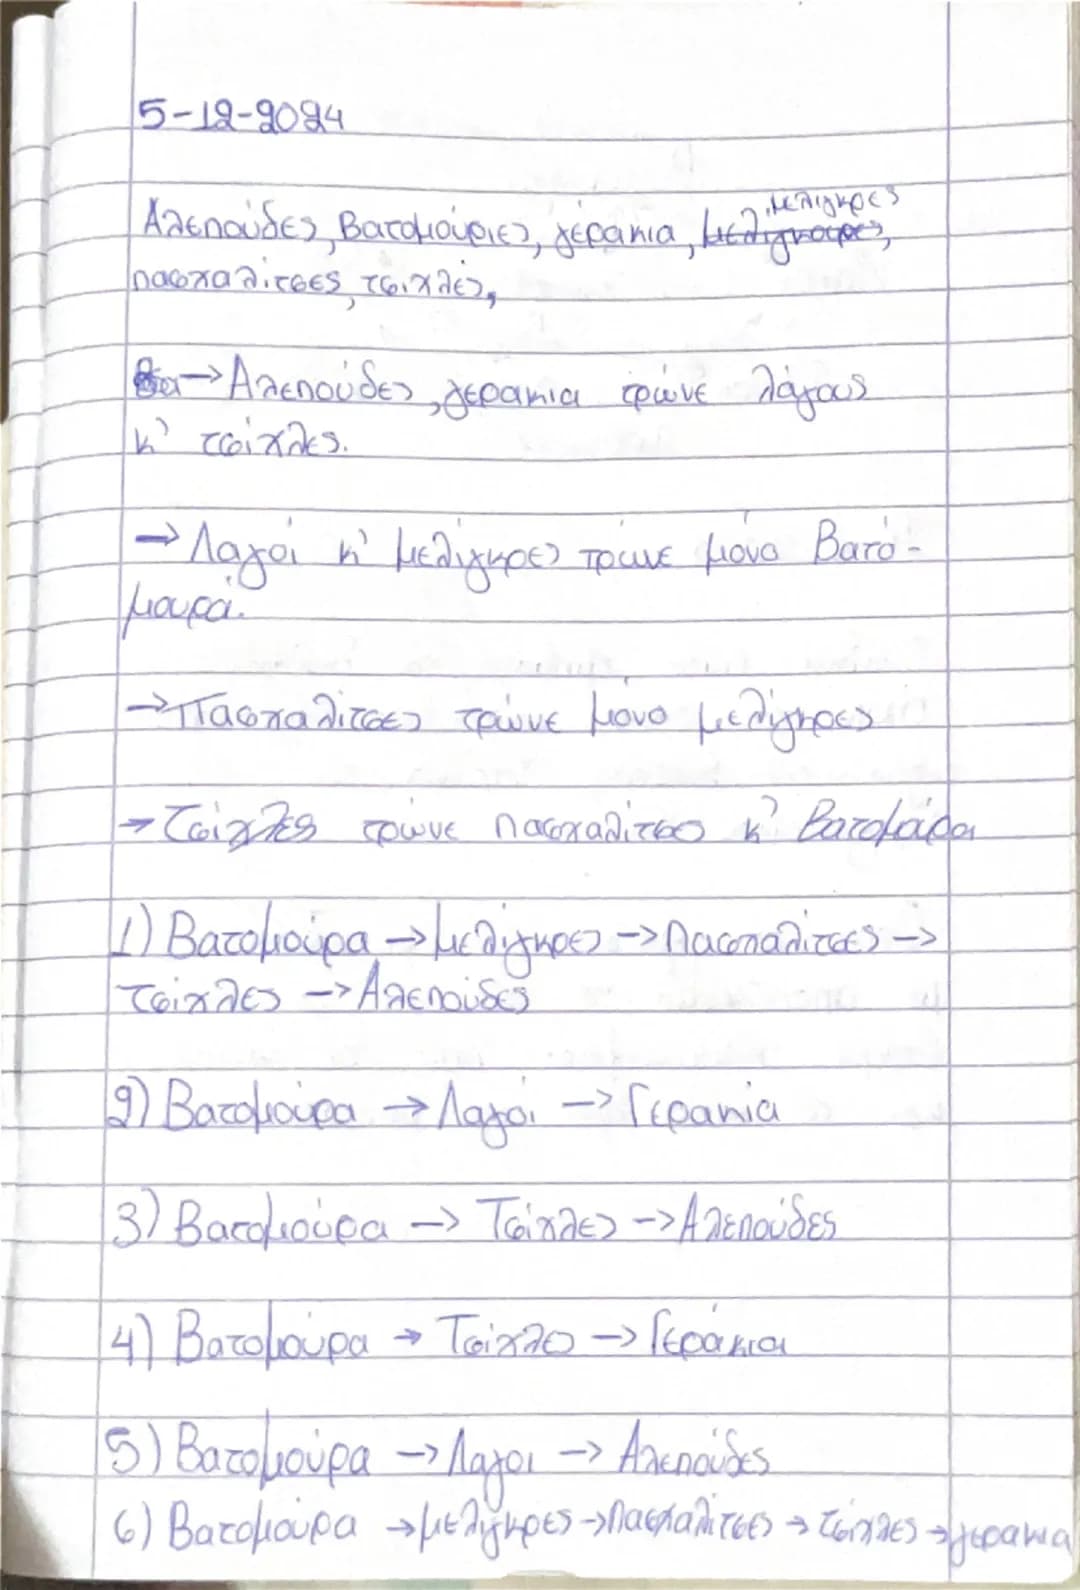 5-12-2024
Αλεπούδες, Βατομουριές, γεράκια, μελίγκρες,
πασχαλίτσες, τσίχλες,
→ Αλεπούδες, γεράκια τρώνε λάγους
κ' τσίχλες.
→ Λαγοί κ' μελίγκρες τρώνε μόνο Βατό-
μουρα.
→ Πασχαλίτσες τρώνε μόνο μελίγκρες
→ Τσίχλες τρώνε πασχαλίτσες κ' Βατομούρα
1) Βατομούρα → μελίγκρες → Πασχαλίτσες →
τσίχλες → Αλεπούδες
2) Βατομούρα → Λαγοί → Γεράκια
3) Βατομούρα → Τσίχλες → Αλεπούδες
4) Βατομούρα → Τσίχλες → Γεράκια
5) Βατομούρα → Λαγοι → Αλεπούδες
6) Βατομούρα → μελίγκρες → Πασχαλίτσες → τσίχλες → γερακια